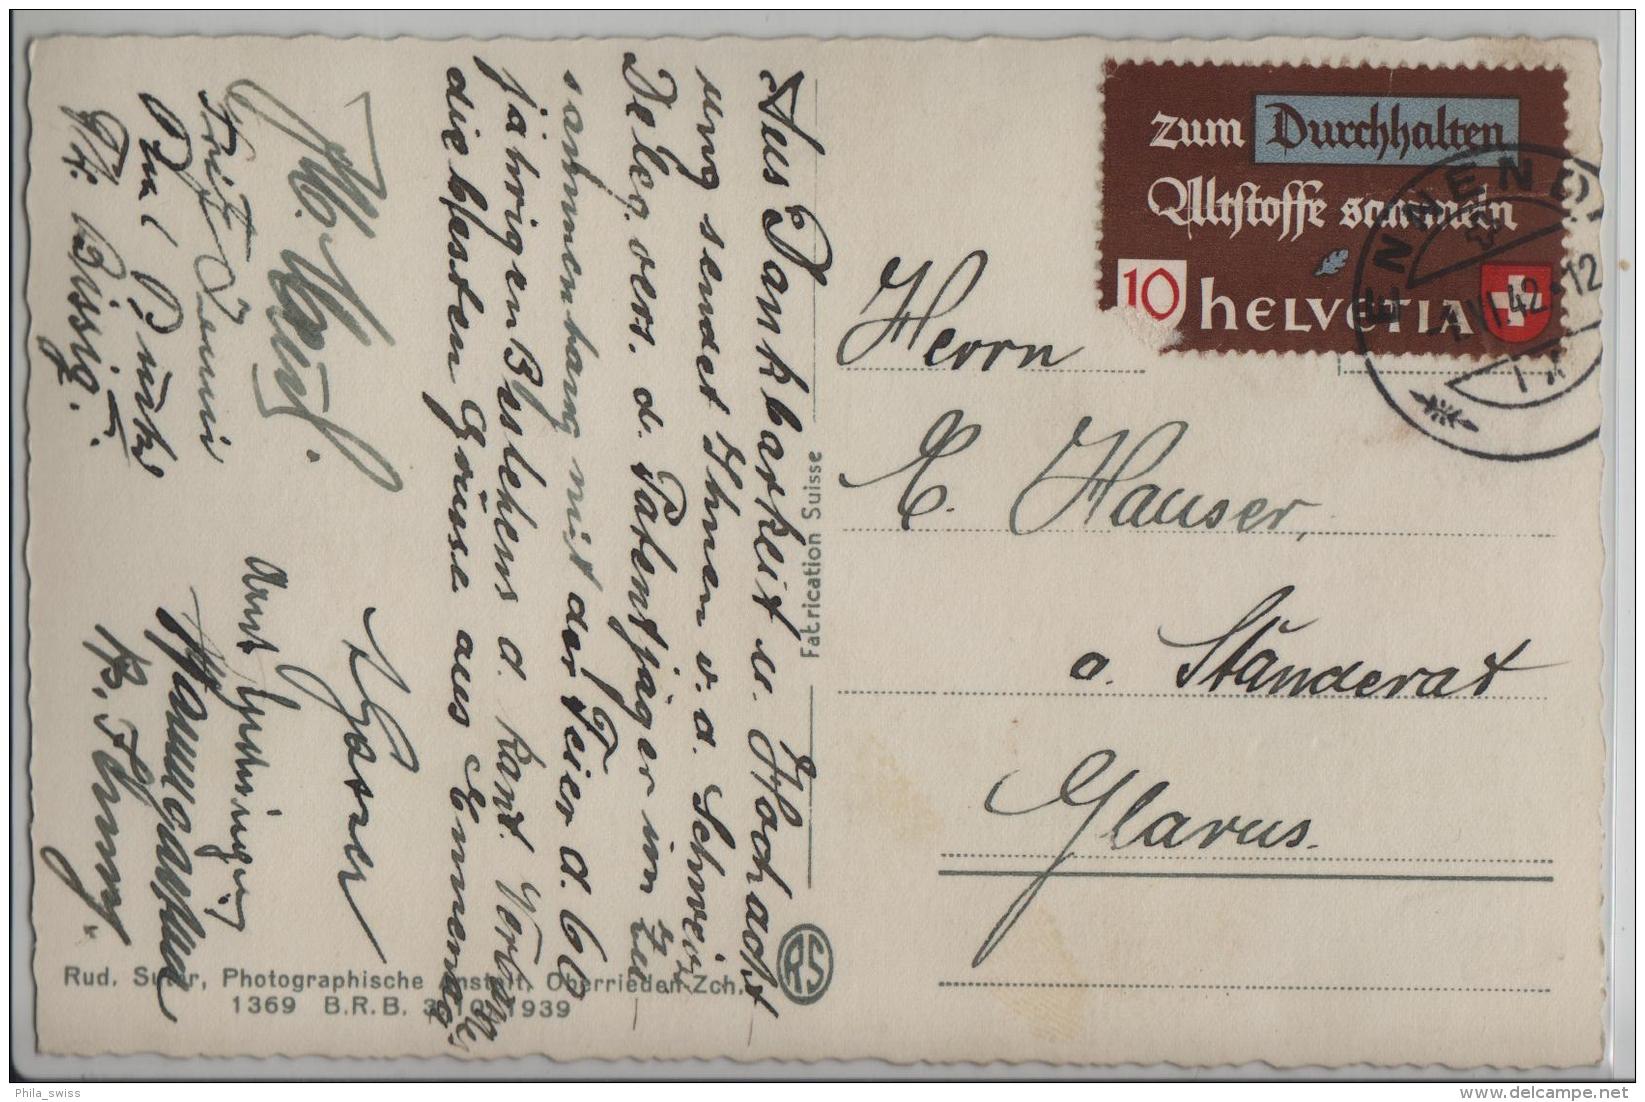 zum Durchhalten
Altstoffe sammeln
10 HELVETIA
ENNENDA
-1.VI.42-12
Herrn
E. Hauser,
a. Ständerat
Glarus.
Aus Dankbarkeit u. Hochacht
ung sendet Ihnen v. d. Schweiz.
Deleg. vers. d. Patentjäger im Zu
sammenhang mit der Feier d. 60
jährigen Bestehens d. kant. Verb. 
die besten Grüsse aus Ennenda.
Fritz Jenni
Fr. Bissig.
Fabrication Suisse
RS
Rud. Suter, Photographische Anstalt, Oberrieden-Zch.
1369 B.R.B. 3. 1939
Phila_swiss
delcampe.net